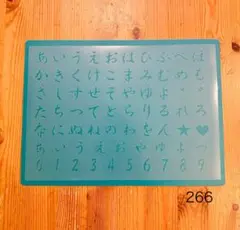 あいうえおはひふへほ
かきくけこまみむめも
さしすせそやゆよ゛゜
たちつてとらりるれろ
なにぬねのわをん★♥
あいうえおやゆよっ
0123456789
266